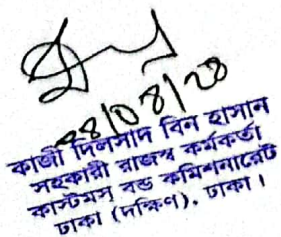 ২৪/০৪/২৪
কাজী দিলসাদ বিন হাসান
সহকারী রাজস্ব কর্মকর্তা
কাস্টমস বন্ড কমিশনারেট
ঢাকা (দক্ষিণ), ঢাকা।